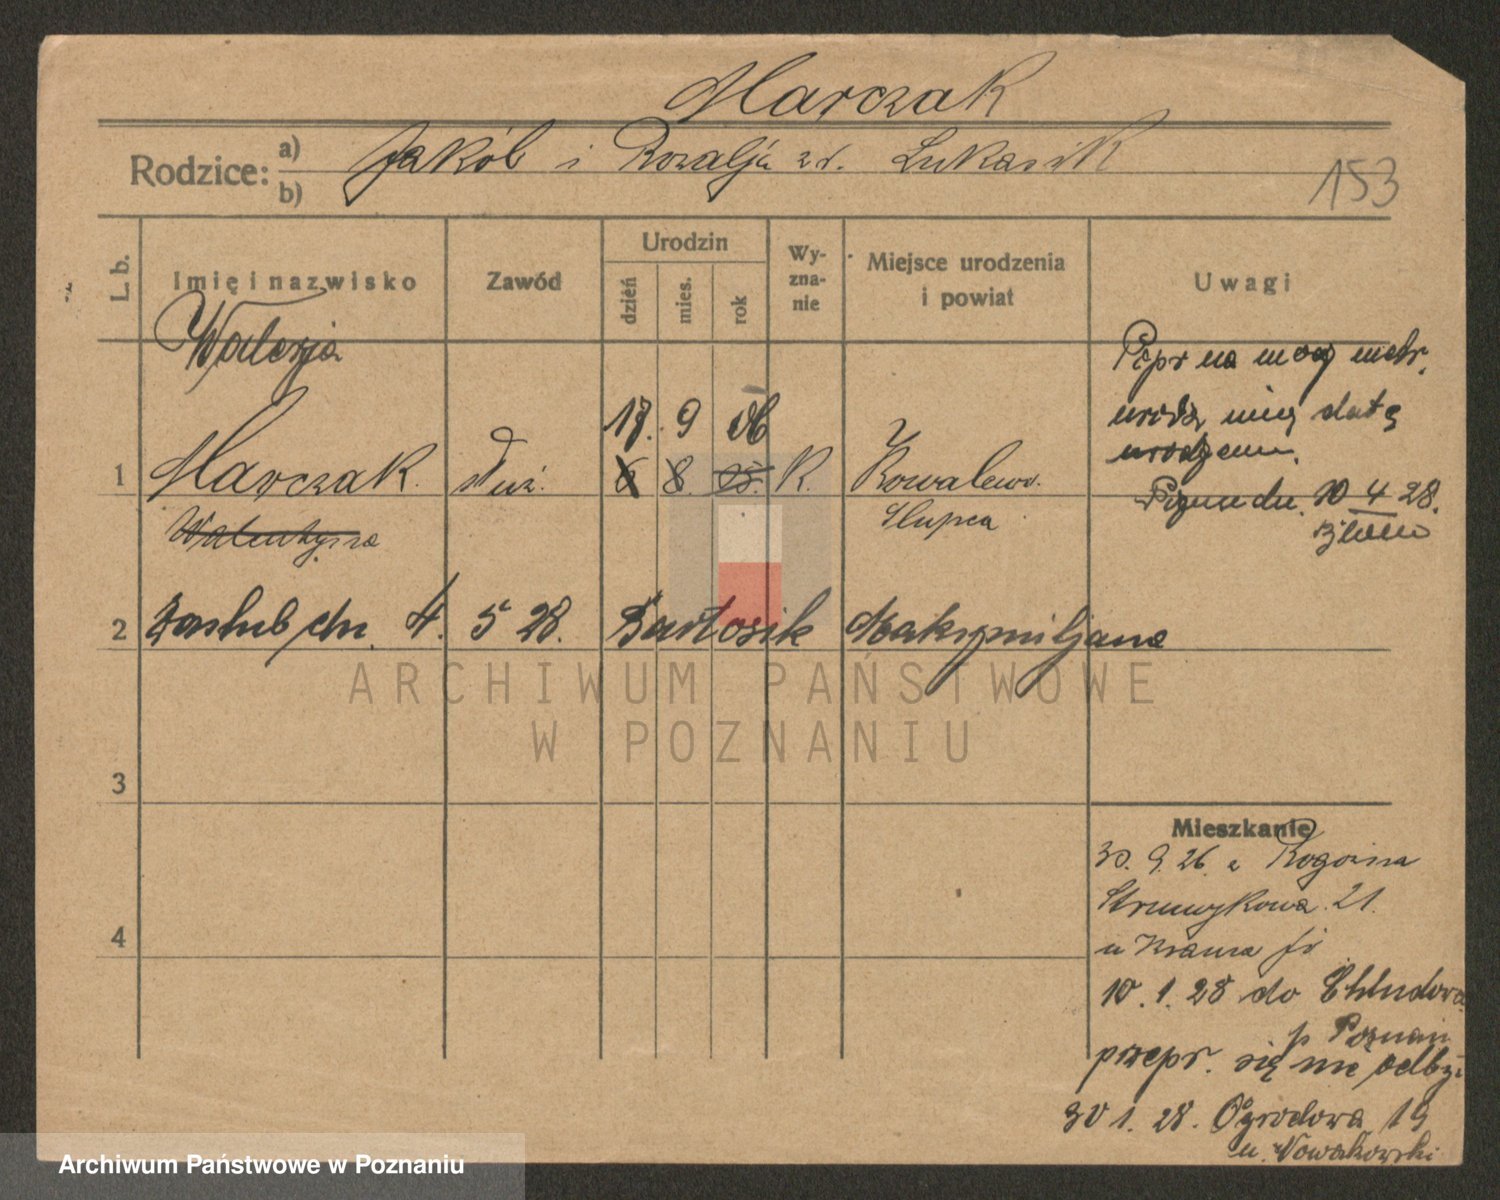 Marczak
Rodzice: a) Jakób i Rozalja zd. Łukasik
b)
153
L. b.
Imię i nazwisko
Zawód
Urodzin
dzień
mies.
rok
Wy-
zna-
nie
Miejsce urodzenia
i powiat
Uwagi
Walerja
17. 9 06
1 Marczak służ. 6 8. 05. R. Kowalewo.
Walentyna
Słupca
Popr na mocy metr.
urodz daty
urodzenia.
Poznań dn. 10 4 28.
2 Zaślub dn. 4. 5 28. Bartosik Maksymiljana
3
4
Mieszkanie
30. 9. 26. z Rogoźna
Strumykowa 21.
u
10. 1. 28 do Chludowa
p Poznań
przepr. się nie odby
30 1. 28. Ogrodowa 19
u. Nowakowski
ARCHIWUM PAŃSTWOWE
W POZNANIU
Archiwum Państwowe w Poznaniu